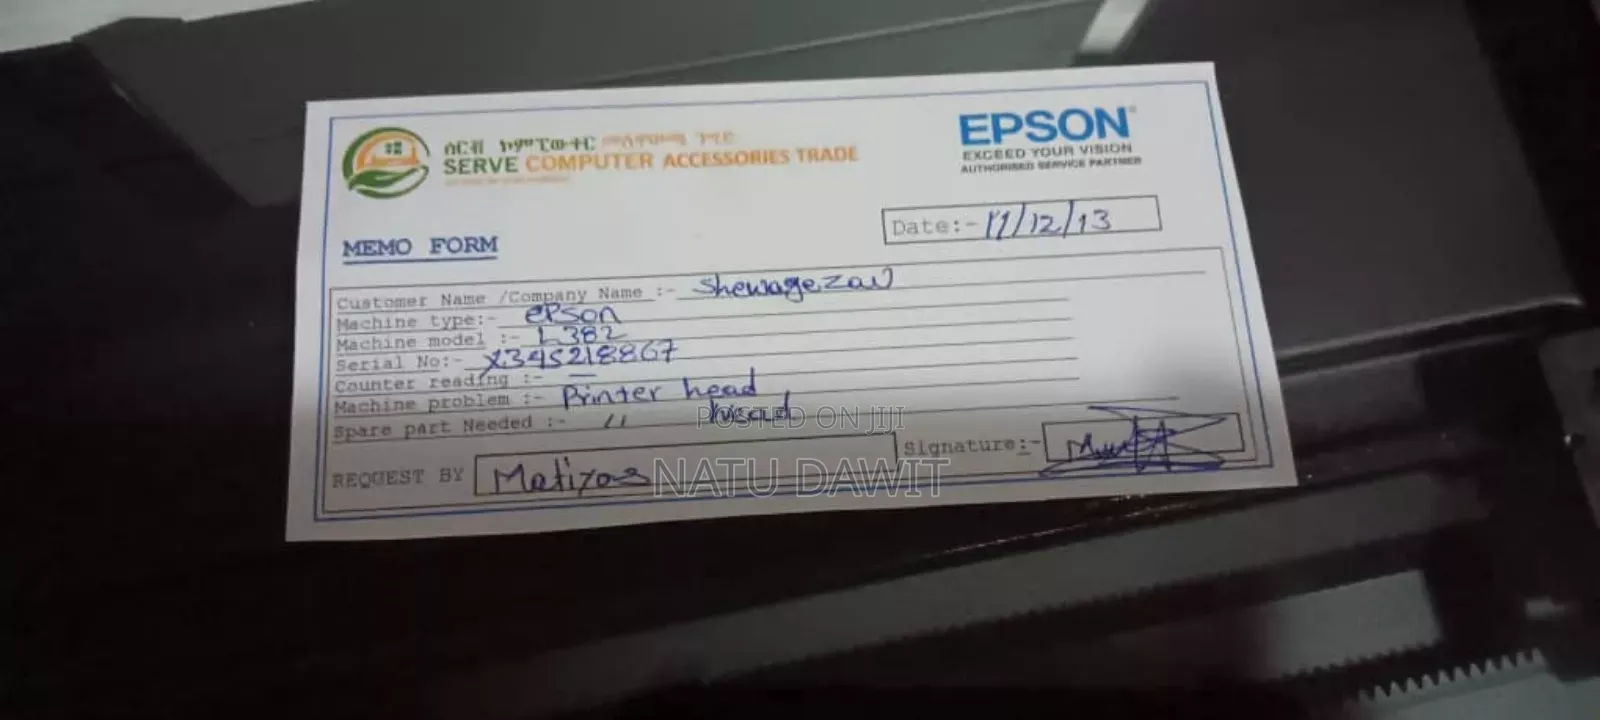 ሰርቭ ኮምፒውተር
SERVE COMPUTER ACCESSORIES TRADE
EPSON
EXCEED YOUR VISION
AUTHORISED SERVICE PARTNER
Date:- 11/12/13
MEMO FORM
Customer Name /Company Name :- Shewagezaw
Machine type:- epson
Machine model :- L382
Serial No:- X345218867
Counter reading :- —
Machine problem :- Printer head
Spare part Needed :- 11 head
REQUEST BY Matiyos
Signature:-
POSTED ON JIJI
NATU DAWIT